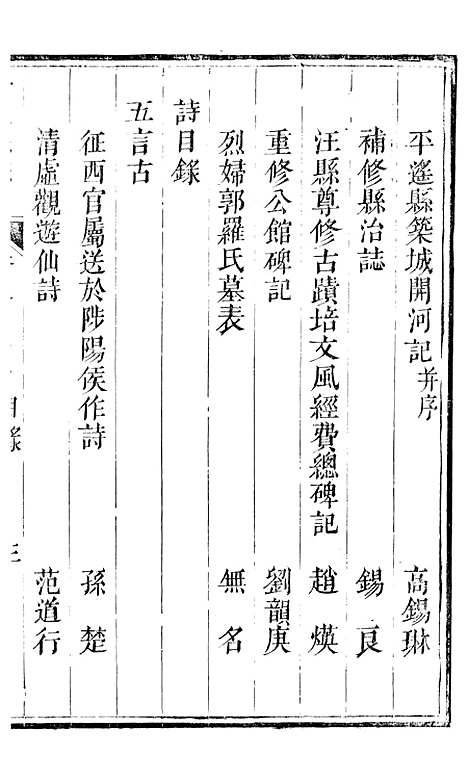 平遙縣築城開河記并序 高錫琳
補修縣治誌 錫良
汪縣尊修古蹟培文風經費總碑記 趙煐
重修公館碑記 劉韻庚
烈婦郭羅氏墓表 無名
詩目錄
五言古
征西官屬送於陟陽侯作詩 孫楚
清虛觀遊仙詩 范道行
目錄 三